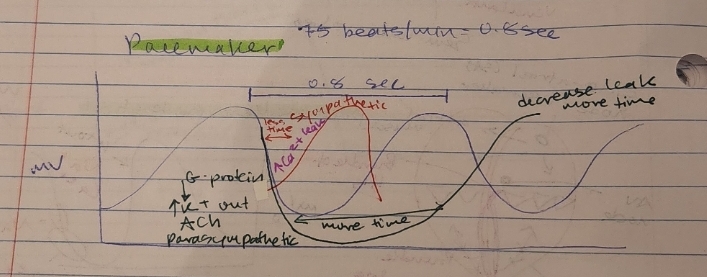 75 beats/min = 0.8 sec
Pacemaker
0.8 sec
decrease leak
more time
less sympathetic
time
↑Ca2+ leak
mV
G-protein
↑K+ out
ACh
parasympathetic
more time